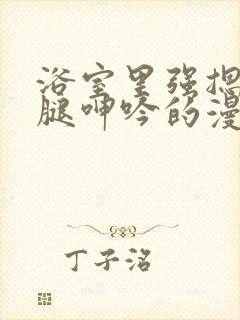 浴室里强摁
腿呻吟的漫
丁子洺